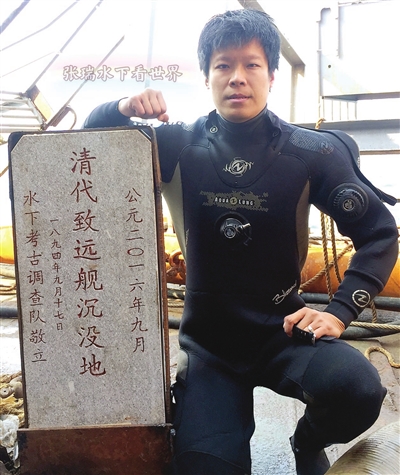 张瑞水下看世界
公元二〇一六年九月
清代致远舰沉没地
一八九四年九月十七日
水下考古调查队敬立
Aqua Lung